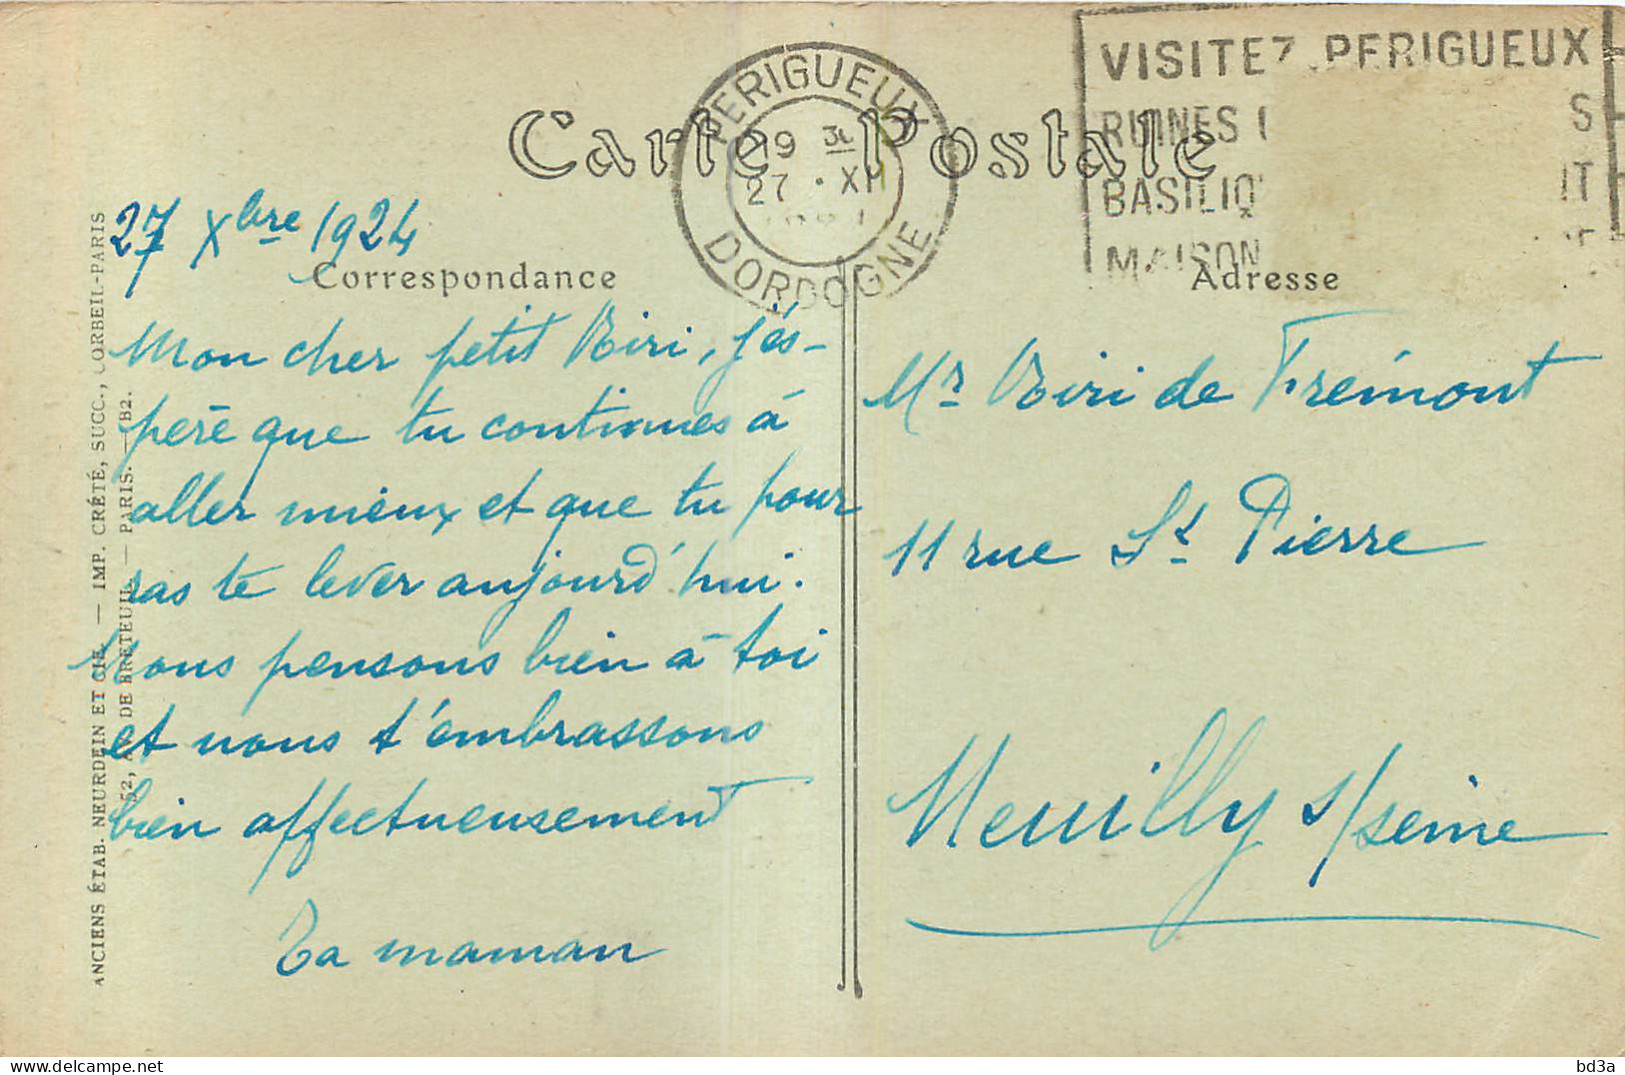 Carte Postale
PERIGUEUX
19 H
27 · XII
DORDOGNE
VISITEZ PERIGUEUX
RUINES
S
BASILIQ
IT
MAISON
27 Xbre 1924
Correspondance
Mon cher petit Riri, j'és-
père que tu continues à
aller mieux et que tu pour
ras te lever aujourd'hui.
Nous pensons bien à toi
et nous t'embrassons
bien affectueusement
Ta maman
Adresse
Mr Riri de Frémont
11 rue St Pierre
Neuilly s/seine
ANCIENS ÉTAB. NEURDEIN ET CIE. — IMP. CRÉTÉ, SUCC., CORBEIL-PARIS
52, AV. DE BRETEUIL — PARIS. — B2.
bd3a